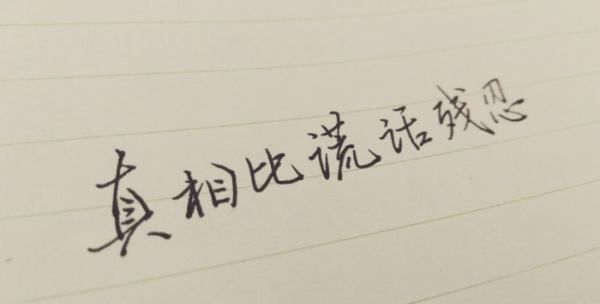 真相比谎话残忍